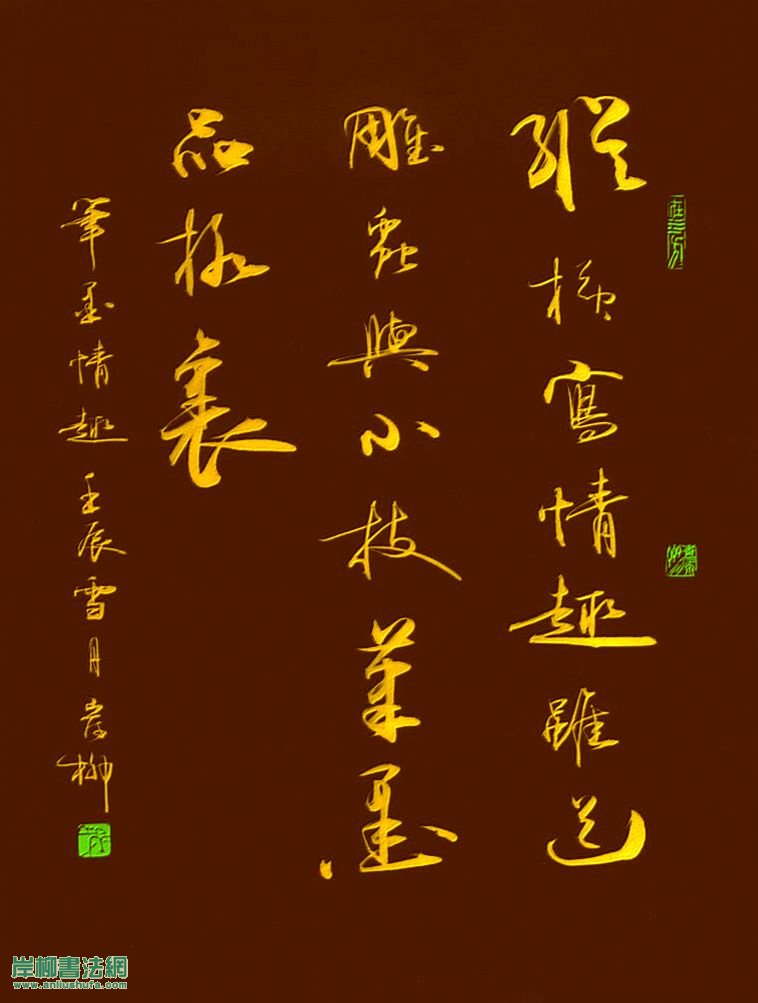 縱橫寫情趣雖道
雕蟲與小枝筆墨
品
筆墨情趣 壬辰雪月岸柳
岸柳書法網
www.anliushufa.com